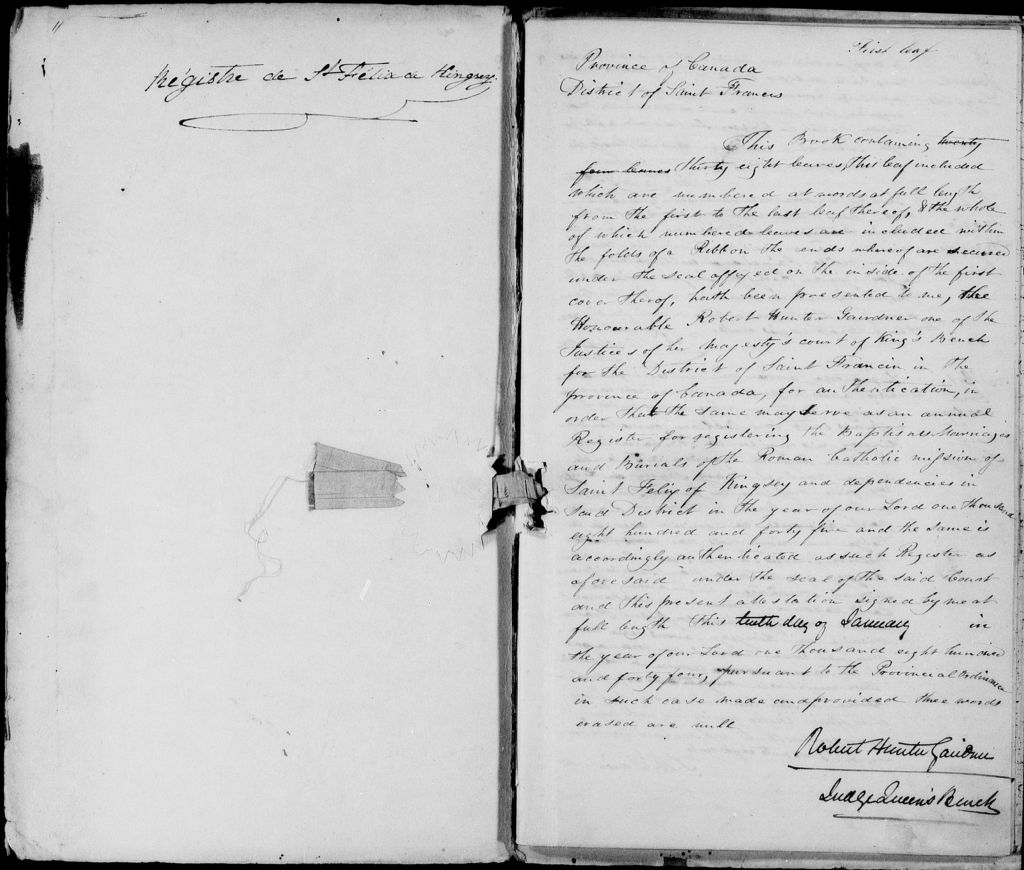 Régistre de St Félix de Kingsey.
First leaf
Province of Canada
District of Saint Francis
This Book containing twenty
four leaves thirty eight leaves, this leaf included
which are numbered at words at full length
from the first to the last leaf thereof, & the whole
of which numbered leaves are included within
the folds of a Ribbon the ends whereof are secured
under the seal affixed on the inside of the first
cover therof, hath been presented to me, the
Honourable Robert Hunter Gairdner one of the
Justices of her Magesty's court of King's Bench
for the District of Saint Francin in the
province of Canada, for authentication, in
order that the same may serve as an annual
Register for registering the Baptismes Marriages
and Burials of the Roman Catholic mission of
Saint Felix of Kingsey and dependencies in
said District in the year of our Lord one thousand
eight hundred and forty five and the same is
accordingly authenticated as such Register as
aforesaid under the seal of the said Court
and this present atestation signed by me at
full length this tenth day of January in
the year of our Lord one thousand eight hundred
and forty four, pursuant to the Provincial Ordinance
in such case made and provided three words
erased are null
Robert Hunter Gairdner
Judge Queen's Bench